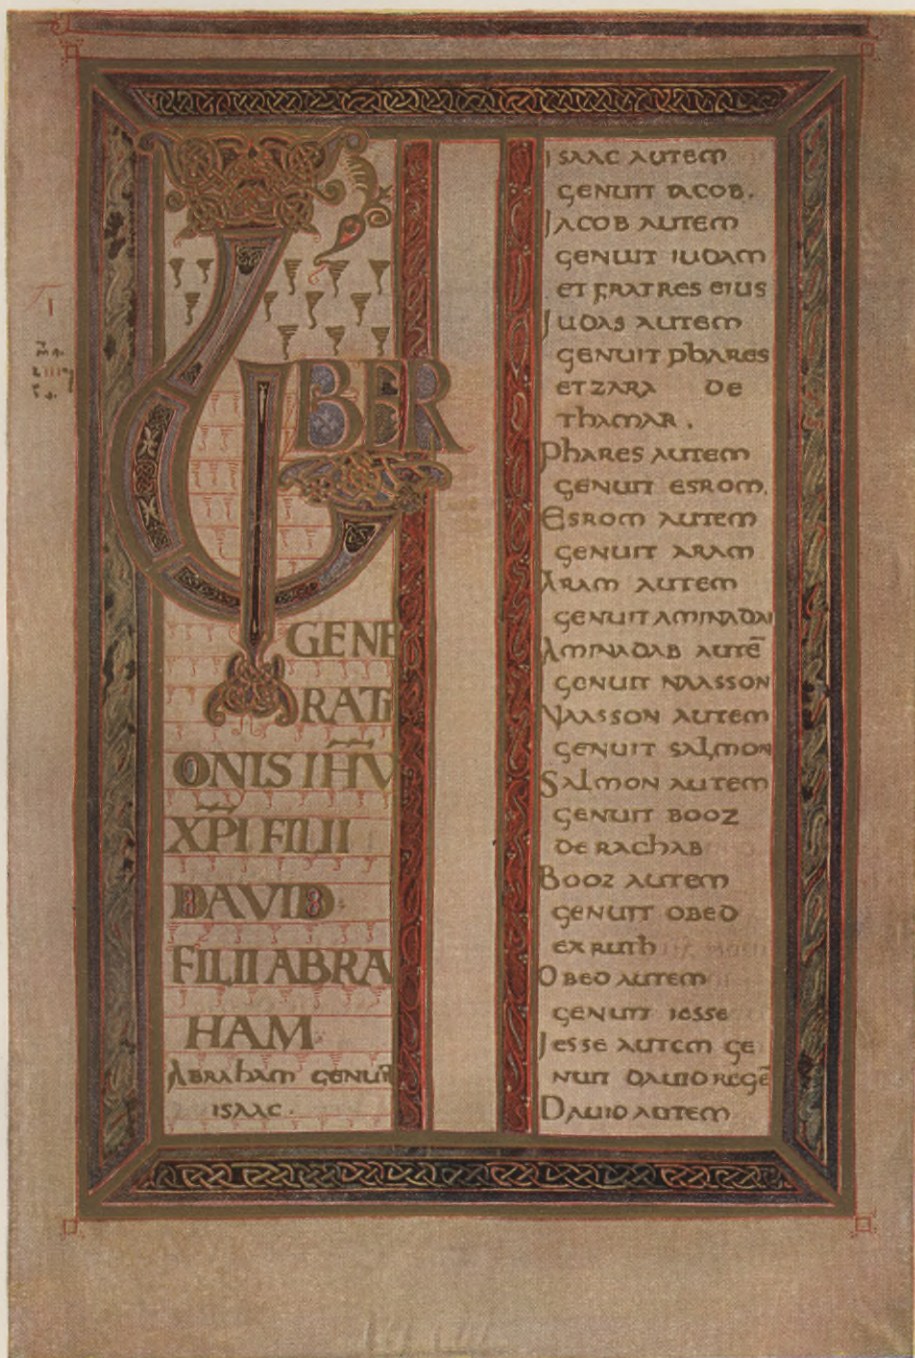 LIBER
GENE
RATI
ONIS IHV̄
XP̄I FILII
DAVID
FILII ABRA
HAM
Abraham genuit
isaac.
Isaac autem
genuit iacob.
Jacob autem
genuit iudam
et fratres eius
Judas autem
genuit phares
et zara de
thamar.
Phares autem
genuit esrom.
Esrom autem
genuit aram
Aram autem
genuit aminadab
Aminadab autē
genuit naasson
Naasson autem
genuit salmon
Salmon autem
genuit booz
de rachab
Booz autem
genuit obed
ex ruth
Obed autem
genuit iesse
Jesse autem ge
nuit dauid regē
Dauid autem